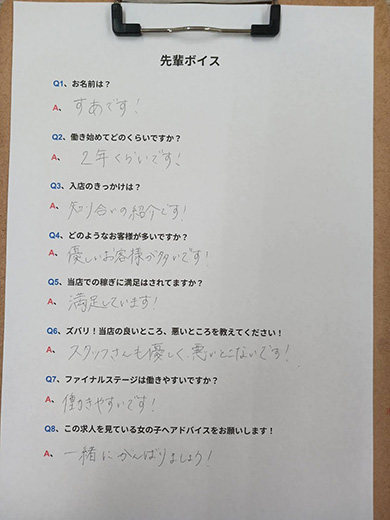 先輩ボイス
Q1、お名前は？
A、すあです！
Q2、働き始めてどのくらいですか？
A、2年くらいです！
Q3、入店のきっかけは？
A、知り合いの紹介です！
Q4、どのようなお客様が多いですか？
A、優しいお客様が多いです！
Q5、当店での稼ぎに満足はされてますか？
A、満足しています！
Q6、ズバリ！当店の良いところ、悪いところを教えてください！
A、スタッフさんも優しく、悪いとこないです！
Q7、ファイナルステージは働きやすいですか？
A、働きやすいです！
Q8、この求人を見ている女の子へアドバイスをお願いします！
A、一緒にがんばりましょう！